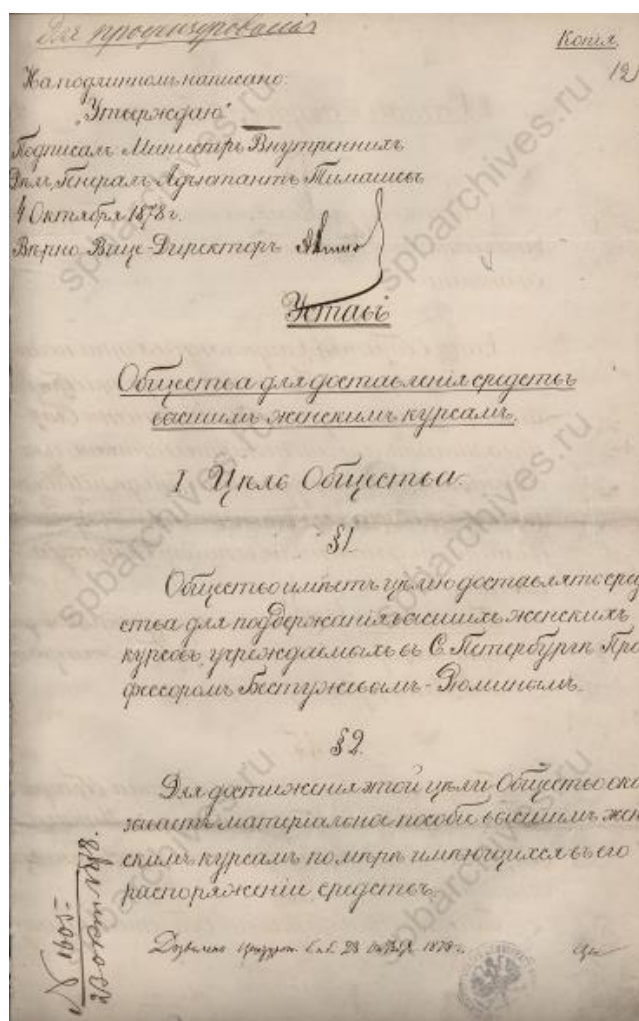 Для процензурованія
Копія.
12
На подлинномъ написано:
"Утверждаю"
Подписалъ Министръ Внутреннихъ
Дѣлъ, Генералъ-Адъютантъ Тимашевъ
4 Октября 1878 г.
Вѣрно: Вице-Директоръ
Уставъ
Общества для доставленія средствъ
высшимъ женскимъ курсамъ.
I Цѣль Общества.
§1.
Общество имѣетъ цѣлію доставлять сред
ства для поддержанія высшихъ женскихъ
курсовъ, учреждаемыхъ въ С. Петербургѣ Про
фессоромъ Бестужевымъ-Рюминымъ.
§2.
Для достиженія этой цѣли Общество ока
зываетъ матеріальное пособіе высшимъ жен
скимъ курсамъ по мѣрѣ имѣющихся въ его
распоряженіи средствъ.
Дозволено Цензурою. С.п.б. 23 Октбр. 1878 г.
№ 1605
spbarchives.ru